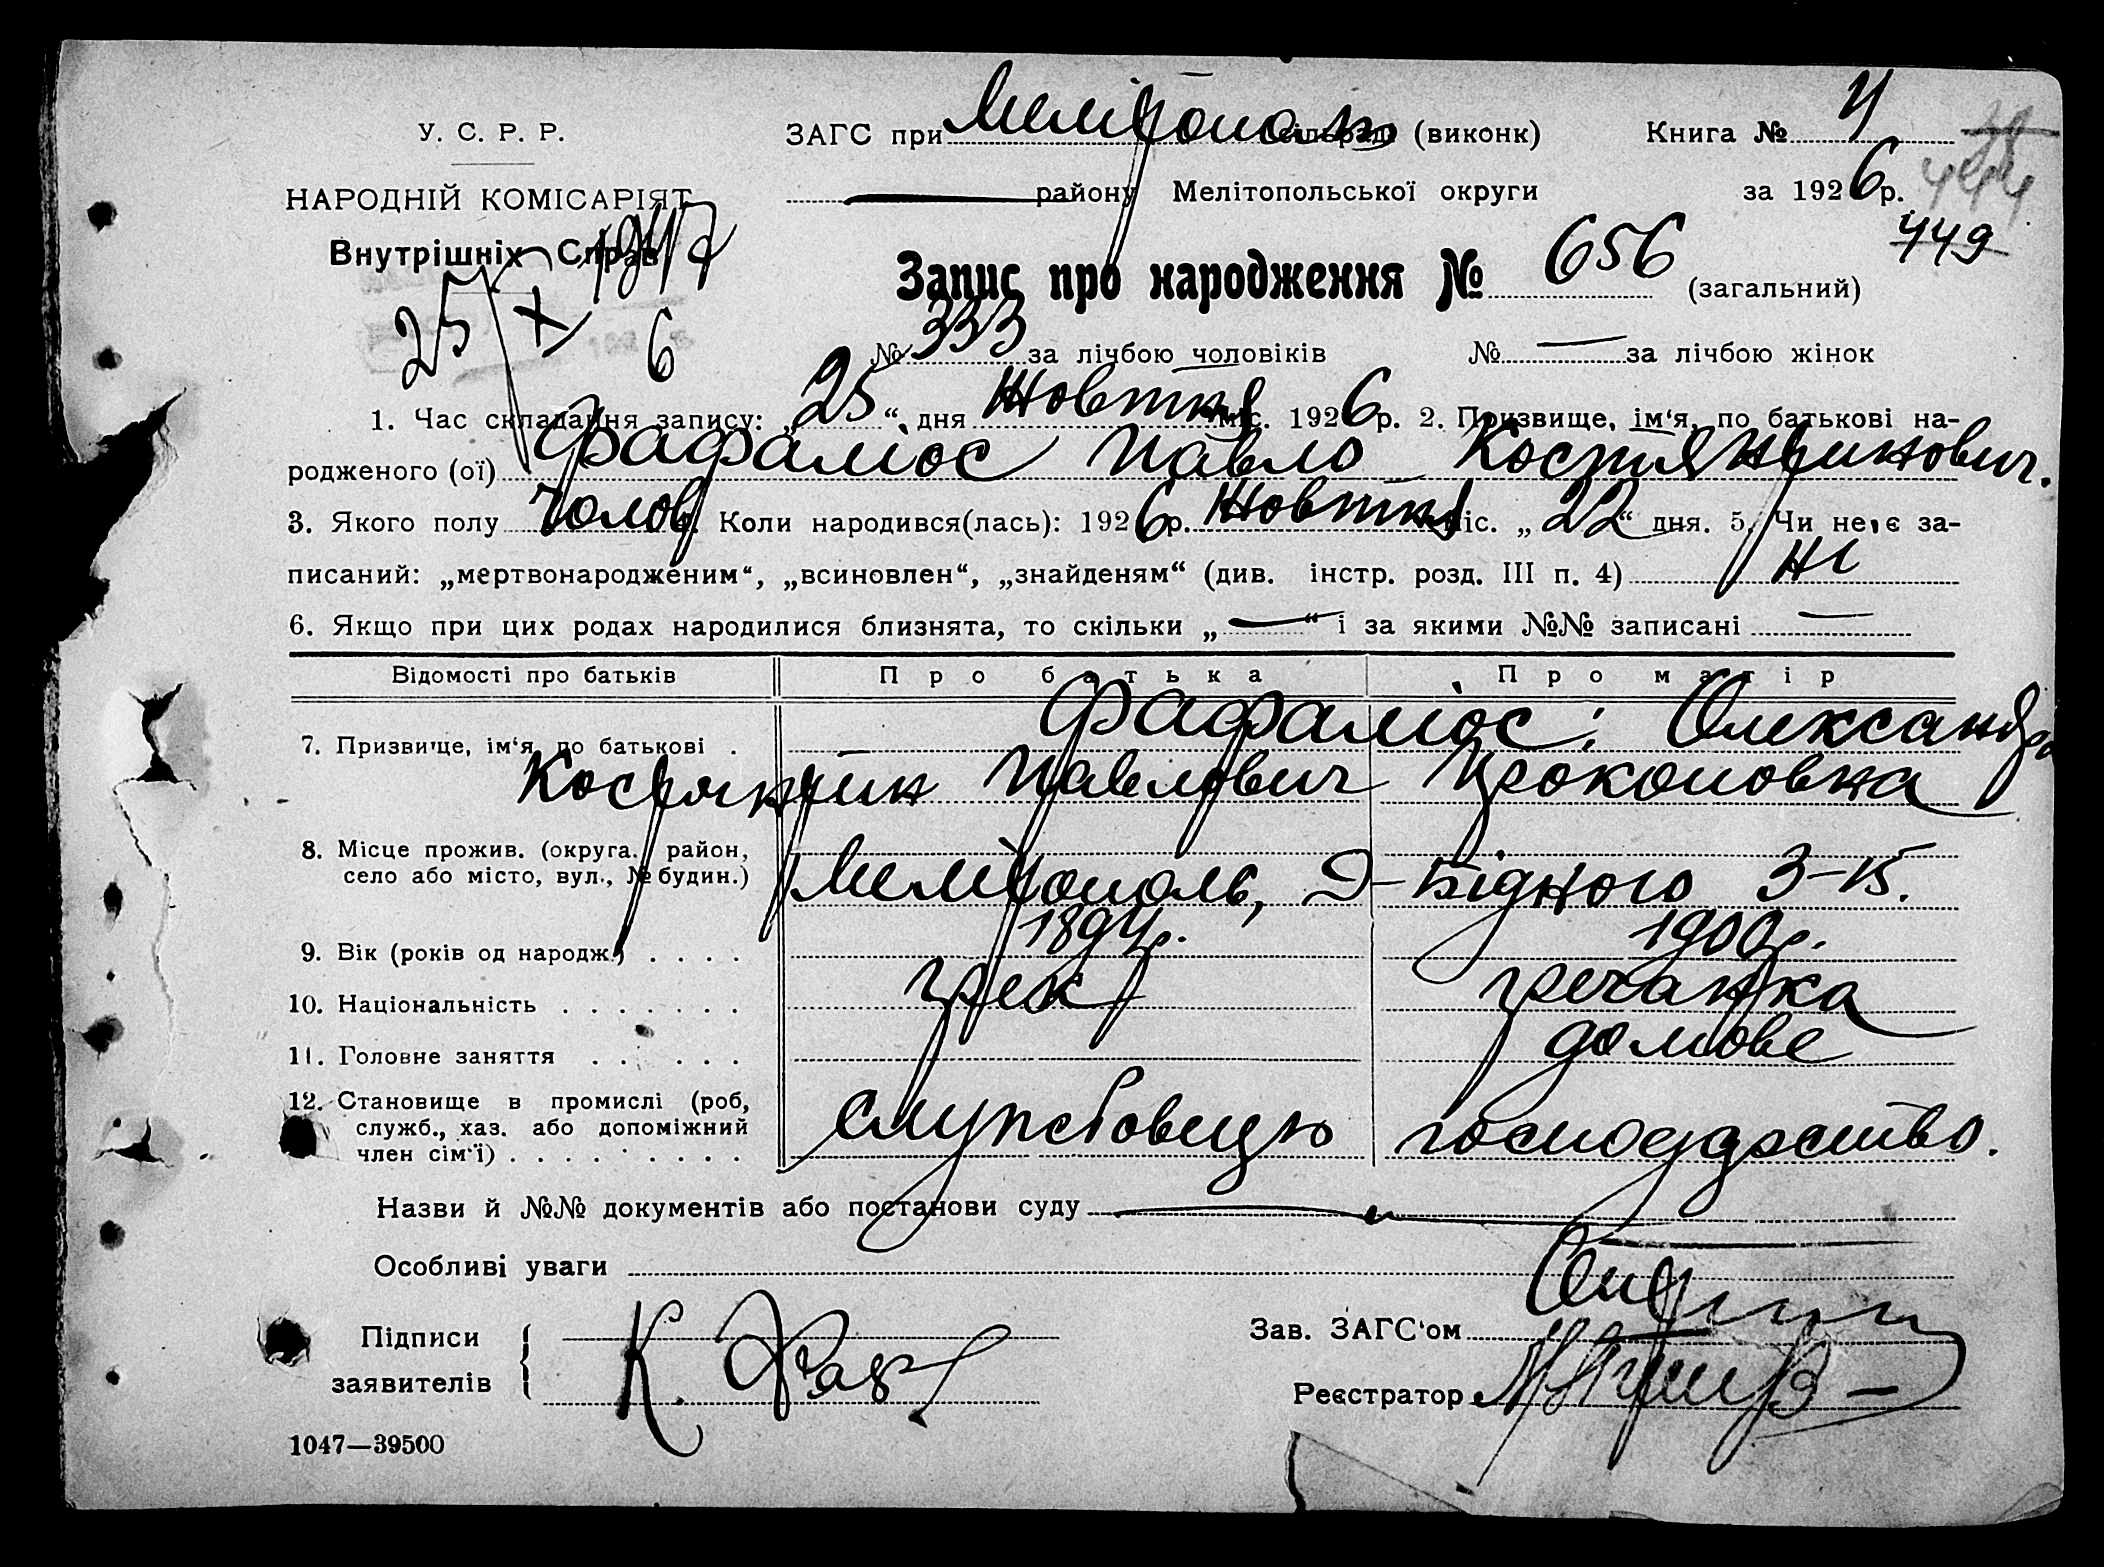 У. С. Р. Р.
НАРОДНІЙ КОМІСАРІЯТ
Внутрішніх Справ
ЗАГС при Мелітополь сільраді (виконк) Книга № 4
району Мелітопольської округи за 1926 р.
444
449
Запис про народження № 656 (загальний)
25/X 1947
6
№ 333 за лічбою чоловіків № — за лічбою жінок
1. Час складання запису: „25“ дня Жовтня міс. 1926 р. 2. Призвище, ім‘я, по батькові на-
родженого (ої) Фафаліос Павло Костянтинович.
3. Якого полу Чолов 4. Коли народився(лась): 1926 р. Жовтня міс. „22“ дня. 5. Чи не є за-
писаний: „мертвонародженим“, „всиновлен“, „знайденям“ (див. інстр. розд. III п. 4) ні
6. Якщо при цих родах народилися близнята, то скільки „—“ і за якими №№ записані —
Відомості про батьків Про батька Про матір
7. Призвище, ім‘я, по батькові . Фафаліос: Олександра
Костянтин Павлович Прокоповна
8. Місце прожив. (округа, район,
село або місто, вул., № будин.) Мелітополь, Д-Бідного 3-15.
9. Вік (років од народж.) . . . . 1894р. 1900р.
10. Національність . . . . . . . грек гречанка
11. Головне заняття . . . . . . домове
12. Становище в промислі (роб,
служб., хаз. або допоміжний
член сім‘ї) . . . . . . . . . службовець господарство.
Назви й №№ документів або постанови суду —
Особливі уваги
Підписи
заявителів К. Фаф
Зав. ЗАГС‘ом
Реєстратор
1047—39500